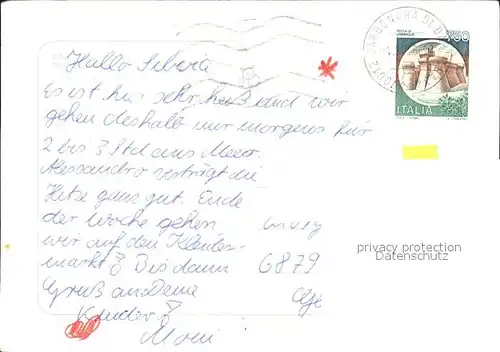 Hallo
Es ist hier sehr heiß und wir
gehen deshalb nur morgens für
2 bis 3 Std ans Meer.
Alessandro verträgt die
Hitze ganz gut. Ende
der Woche gehen
wir auf den Kleider-
markt. Bis dann
Gruß an Deine
Kinder
Moni
6879
750
ITALIA
privacy protection
Datenschutz